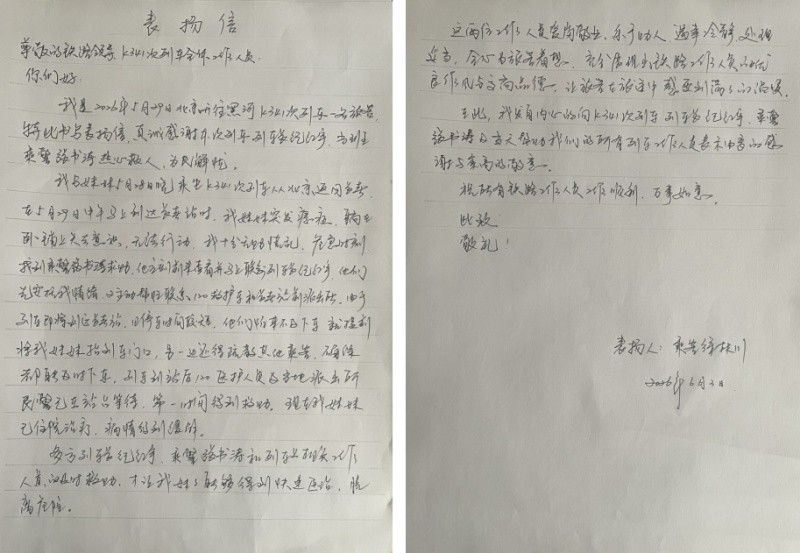 表扬信
尊敬的铁路领导、K341次列车全体工作人员
你们好:
我是2026年5月29日北京开往黑河K341次列车一名旅客,
特此书写表扬信,真诚感谢本次列车列车长纪红军,
乘警 书涛热心救人,为民解忧。
我与妹妹5月28日晚乘坐K341次列车从北京返回
在5月29日中午马上到达 站时,我妹妹突发 ,躺在
卧铺上失去意识,无法行动,我十分无助慌乱,危急时刻
找到乘警 书涛求助,他立刻前来查看并马上联系列车长纪红军,他们
先安抚我情绪,又主动帮忙联系120救护车和 站派出所,由于
列车即将到达 站,且停车时间较短,他们怕来不及下车就提前
将我妹妹抬到车门口,另一边还得疏散其他乘客,确保
都能及时下车,列车到站后120医护人员及当地派出所
民警已在站台等待,第一时间得到救助。现在我妹妹
已住院治疗,病情得到缓解。
多亏列车长纪红军、乘警 书涛和列车上相关工作
人员的及时救助,才让我妹妹能够得到快速医治,脱
离危险。
这两位工作人员爱岗敬业,乐于助人,遇事冷静,处理
妥当,全心为旅客着想,充分展现出铁路工作人员的优
良作风与高尚品德,让旅客在旅途中感受到满满的温暖。
在此,我发自内心的向K341次列车列车长纪红军,乘警
书涛及当天帮助我们的所有列车工作人员表示由衷的感
谢与崇高的敬意。
祝所有铁路工作人员工作顺利,万事如意。
此致
敬礼!
表扬人:乘客
2026年6月2日